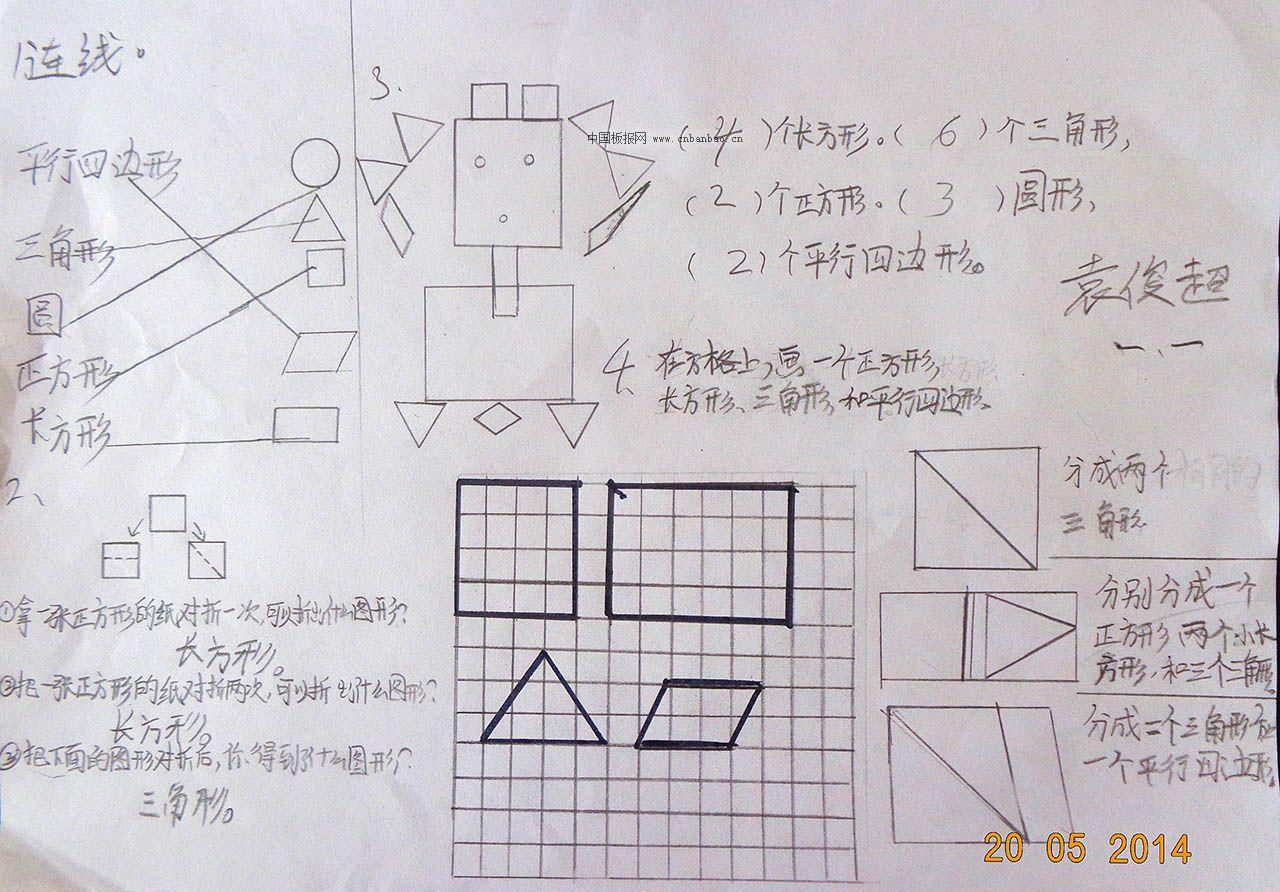 1、连线。
平行四边形
三角形
圆
正方形
长方形
2、
①拿一张正方形的纸对折一次,可以折出什么图形?
长方形。
②把一张正方形的纸对折两次,可以折出什么图形?
长方形。
③把下面的图形对折后,你得到了什么图形?
三角形。
3、
中国板报网 www.cnbanbao.cn
(4)个长方形。(6)个三角形,
(2)个正方形。(3)圆形、
(2)个平行四边形。
袁俊超
一、一
4、在方格上,画一个正方形,
长方形、三角形,和平行四边形。
分成两个
三角形
分别分成一个
正方形,两个小长
方形,和三个三角形。
分成二个三角形和
一个平行四边形。
20 05 2014